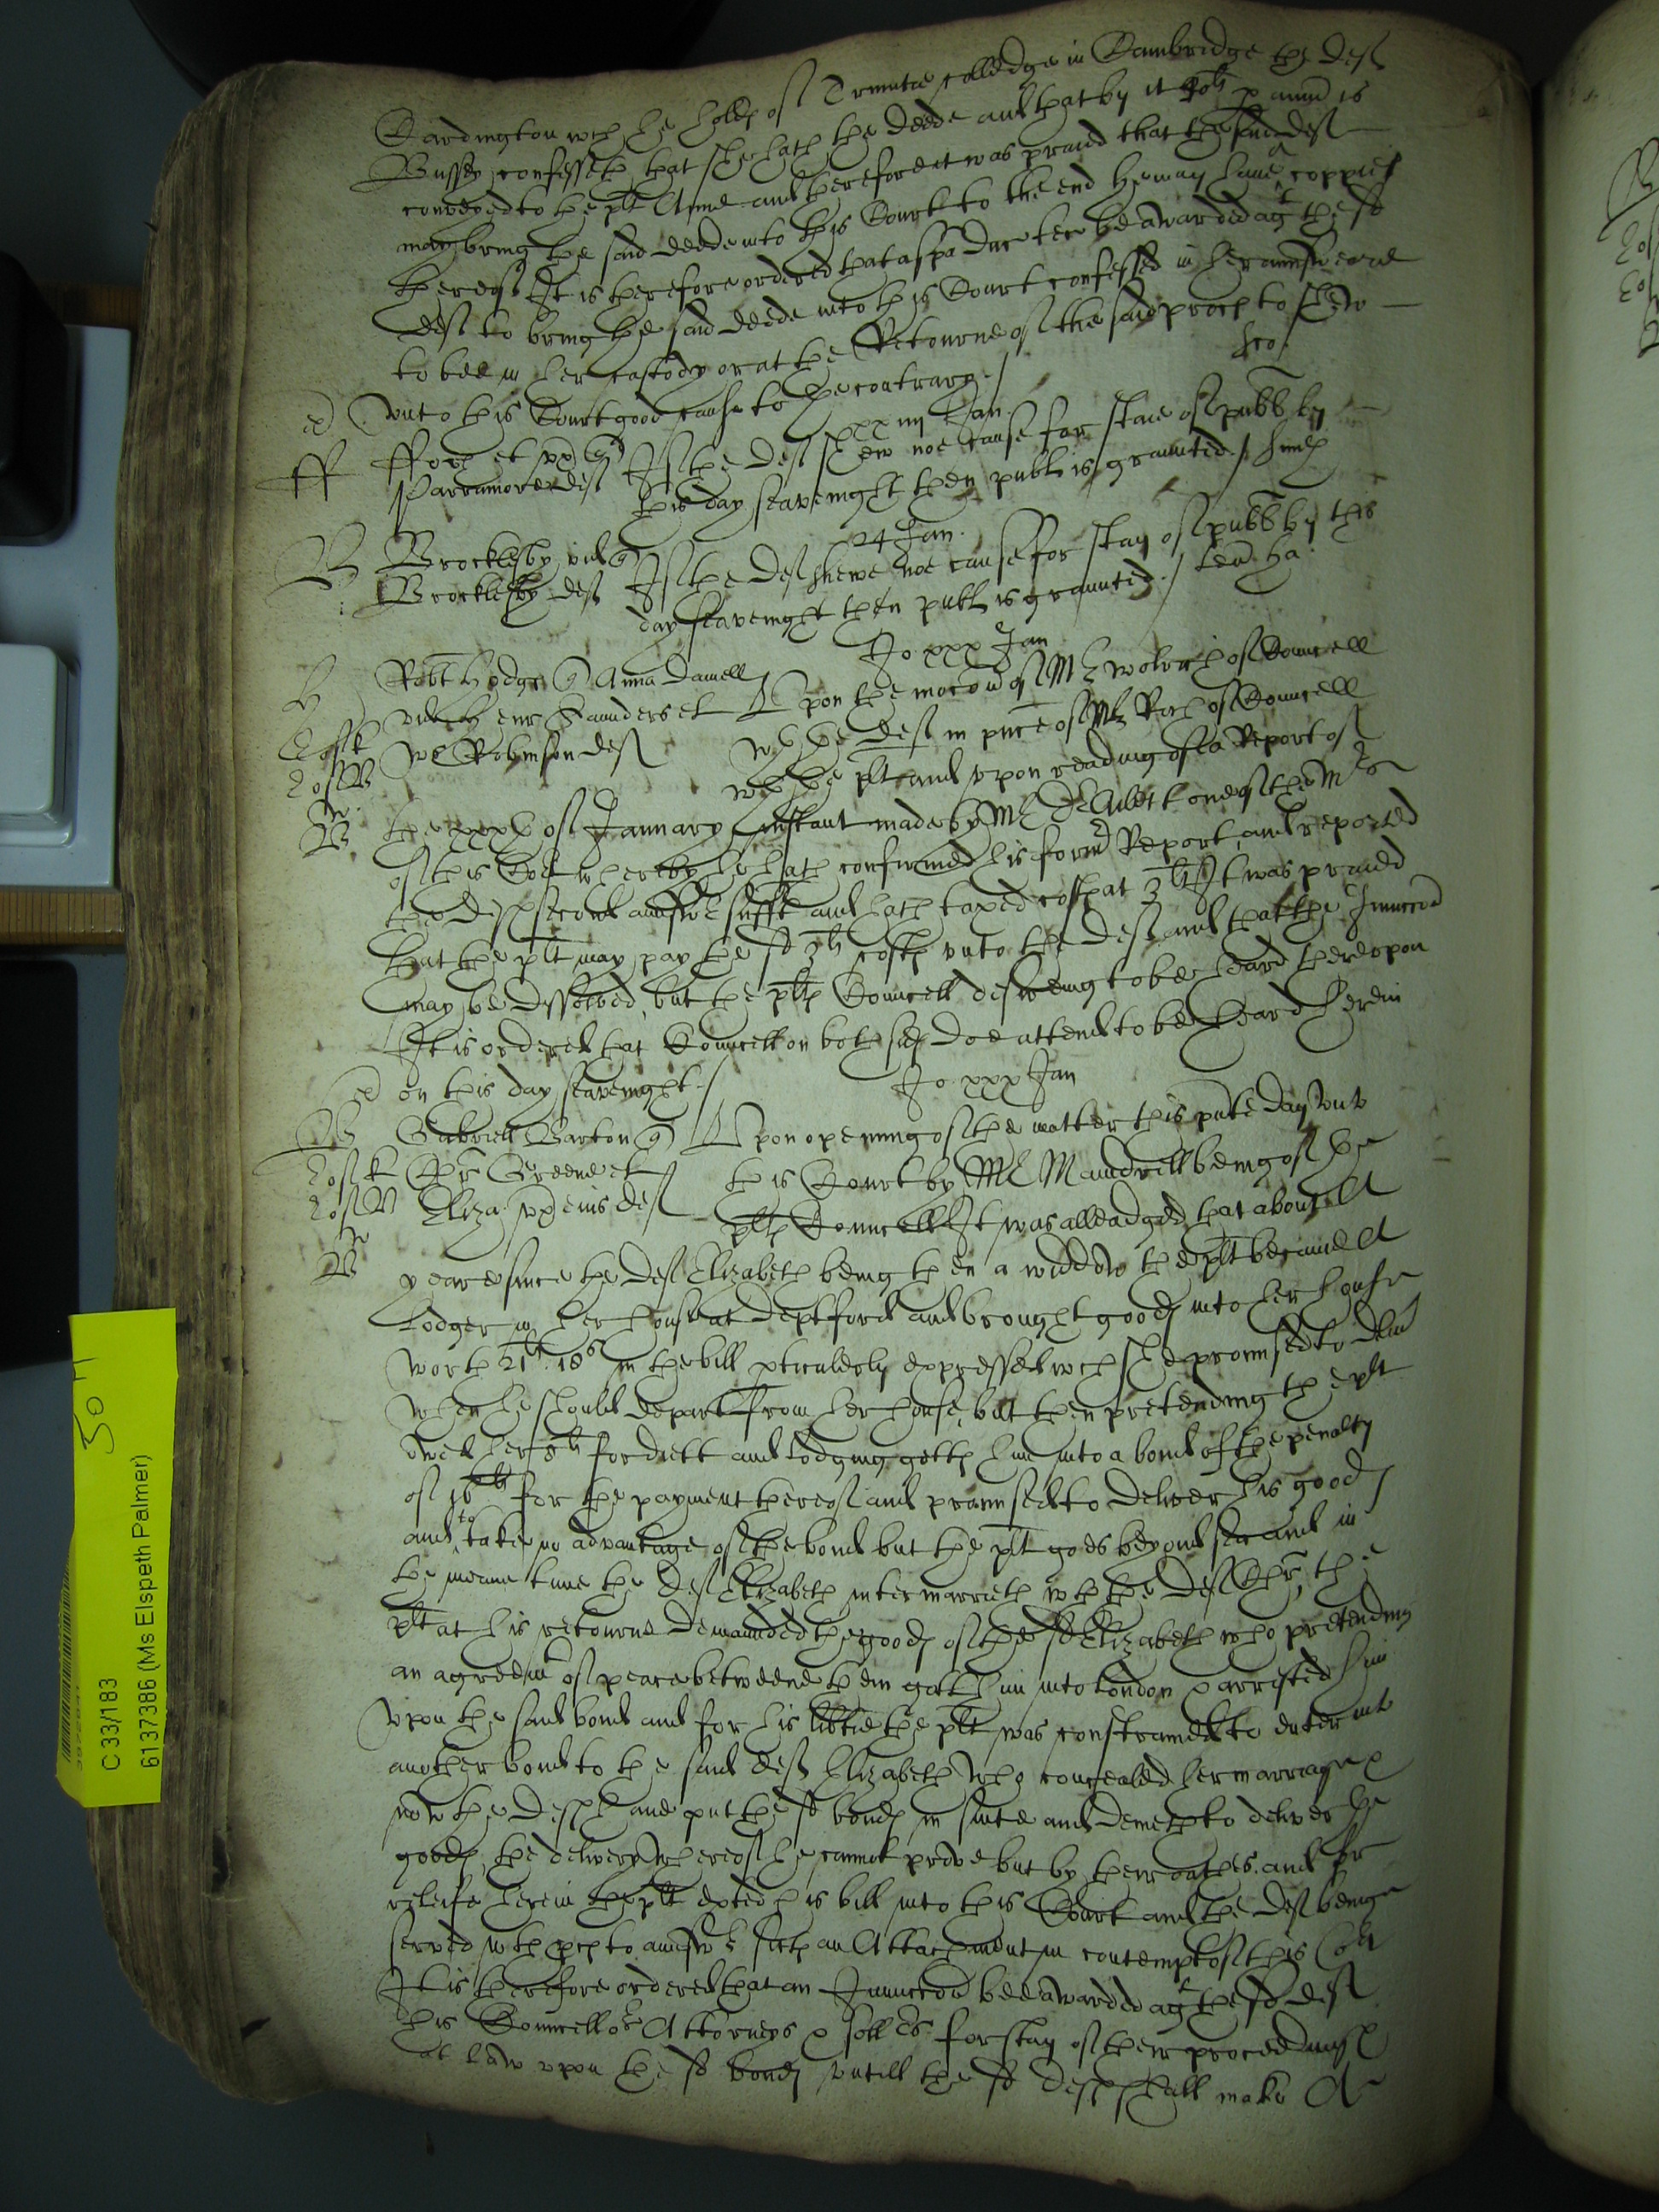 Cardington wch he holds of Trinitie colledge in Cambridge the deft
Bussey confesseth that she hath the deede and that by it 40li p annu is
conveyed to the plt Anne and therefore it was praied that the said deft
may bring the said deede into this Court to the end he may have coppies
thereof It is therefore ordered that a spa duc tec be awarded agt the sd
deft to bring the said deede into this Court confessed in her answeare
to bee in her custody or at the Retourne of the said proces to shew
unto this Court good cause to the contrary /
xxiiij Jan
ff
If the deft shew noe cause for staie of publ by
Parramore deft
this day seavenight then publ is graunted /
24 Jan
B Brocklesby vid q
If the deft shewe noe cause for stay of publ by this
Brocklesby deft
day seavenight then publ is graunted /
Jo xxx Jan
H Robt Hodge q Anna Daniell
vid Henr Saunders et
Upon the mocon of Mr of Councell
Wm Robinson deft
wth the deft in pnce of Mr of Councell
wth the plt and upon reading of a Report of
the of January instant made by Mr one of the Mrs
of this Cort whereby he hath confirmed his former Report, and reported
the defts second answer suffic and hath taxed costs at 3li It was praied
that the plt may pay the sd 3li costs unto the deft and that the Iniuncon
may be dissolved, but the plts Councell desireing to be heard thereupon
It is ordered that Councell on both sides doe attend to be heard herein
on this day seavenight /
Jo xxx Jan
B Gabriell Barton q
Upon opening of the matter this pnte day unto
Chr Greene et
this Court by Mr Maundrell being of the
Eliza ux eius deft
plts Councell It was alleadged that about a
yeare since the deft Elizabeth being then a widdow the plt became a
Lodger in her house at deptford and brought goods into her house
worth 21li 18s in the bill pticulerly expressed wch she promised to deliver
when he should depart from her house, but then pretending the plt
owed her 8li for diett and lodging getts him into a bond of the penalty
of 16li for the payment thereof and promised to deliver his goods
and to take no advantage of the bond but the plt goes beyond sea and in
the meane tyme the deft Elizabeth intermarrieth wth the deft Chr, the
plt at his retourne demaunded the goods of the sd Elizabeth who pretending
an agreemt of peace betweene them gott him into London & arrested him
upon the said bond and for his libtie the plt was constrained to enter into
another bond to the said deft Elizabeth who concealed her marriage &
now the defts have put the sd bonds in suite and denieth to deliver the
goods, the delivery whereof he cannot prove but by their oathes, and for
releife herein the plt exted his bill into this Court and the deft being
served wth pces to answer sitts an Attachment in contempt of this Cort
It is therefore ordered that an Iniuncon bee awarded agt the sd deft
his Councellors Attorneys & sollrs for stay of their proceedings
at law upon the sd bonds untill the sd defts shall make A
30 H
C 33/183
6137386 (Ms Elspeth Palmer)